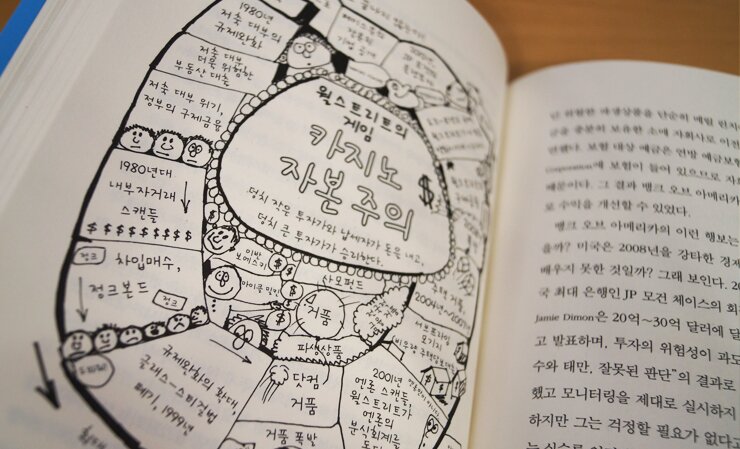 1980년
저축 대부의
규제완화
저축 대부,
더욱 위험한
부동산 대출
저축 대부 위기,
정부의 구제금융
1980년대
내부자거래
스캔들
$ $ $ $ $ $ $ $ $
정크
차입매수,
정크본드
정크
규제완화의 확대,
글래스-스티걸법
폐기, 1999년
월스트리트의
게임
카지노
자본주의
덩치 작은 투자가와 납세자가 돈을 내고,
덩치 큰 투자가가 승리한다.
이반
보에스키
마이클 밀켄
헤지펀드
거품
파생상품
닷컴
거품
거품 폭발
2001년
엔론 스캔들,
월스트리트가
엔론의
분식회계를
주택 거품
서브프라임
모기지
단 위험한 파생상품을 단순히 메릴 린치
금을 충분히 보유한 소매 자회사로 이전
면했다. 보험 대상 예금은 연방 예금보험
Corporation에 보험이 들어 있으므로 자
때문이다. 그 결과 뱅크 오브 아메리카
로 수익을 개선할 수 있었다.
뱅크 오브 아메리카의 이런 행보는
을까? 미국은 2008년을 강타한 경제
배우지 못한 것일까? 그래 보인다. 20
국 최대 은행인 JP 모건 체이스의 회
Jamie Dimon은 20억~30억 달러에 달
고 발표하며, 투자의 위험성이 과도
수와 태만, 잘못된 판단"의 결과로
했고 모니터링을 제대로 실시하지
하지만 그는 걱정할 필요가 없다고